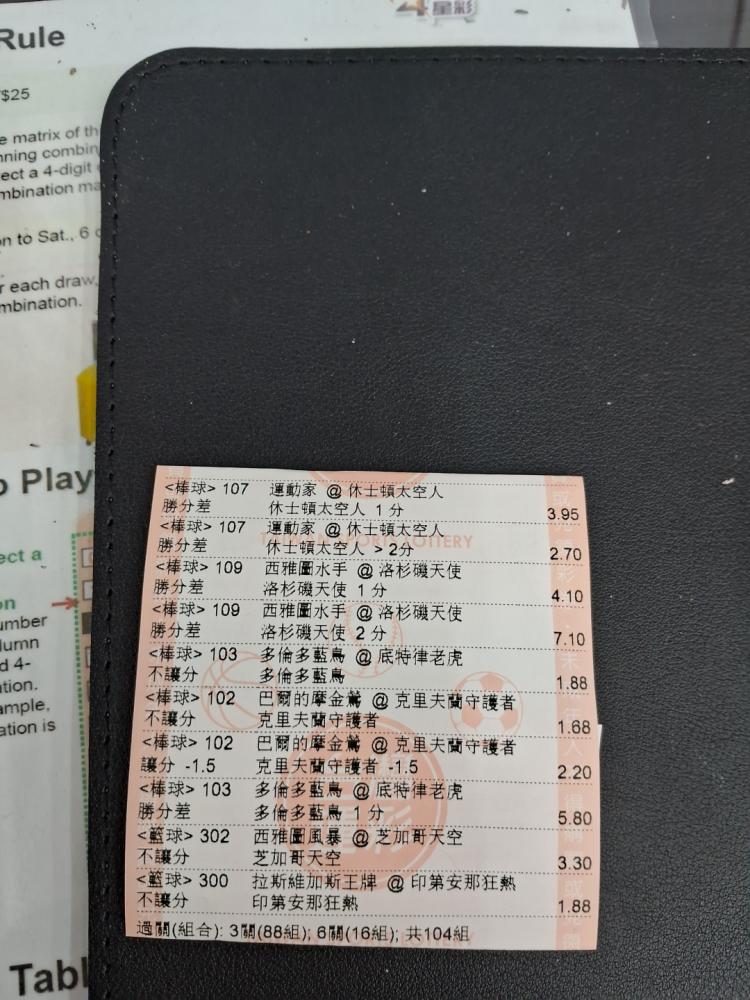 星彩
Rule
$25
e matrix of th
nning combin
ect a 4-digit
mbination ma
on to Sat., 6
r each draw,
mbination.
o Play
ect a
on
umber
lumn
d 4-
ation.
ample,
ation is
Tabl
<棒球> 107 運動家 @ 休士頓太空人
勝分差 休士頓太空人 1 分 3.95
<棒球> 107 運動家 @ 休士頓太空人
勝分差 休士頓太空人 > 2分 2.70
<棒球> 109 西雅圖水手 @ 洛杉磯天使
勝分差 洛杉磯天使 1 分 4.10
<棒球> 109 西雅圖水手 @ 洛杉磯天使
勝分差 洛杉磯天使 2 分 7.10
<棒球> 103 多倫多藍鳥 @ 底特律老虎
不讓分 多倫多藍鳥 1.88
<棒球> 102 巴爾的摩金鶯 @ 克里夫蘭守護者
不讓分 克里夫蘭守護者 1.68
<棒球> 102 巴爾的摩金鶯 @ 克里夫蘭守護者
讓分 -1.5 克里夫蘭守護者 -1.5 2.20
<棒球> 103 多倫多藍鳥 @ 底特律老虎
勝分差 多倫多藍鳥 1 分 5.80
<籃球> 302 西雅圖風暴 @ 芝加哥天空
不讓分 芝加哥天空 3.30
<籃球> 300 拉斯維加斯王牌 @ 印第安那狂熱
不讓分 印第安那狂熱 1.88
過關(組合): 3關(88組); 6關(16組); 共104組